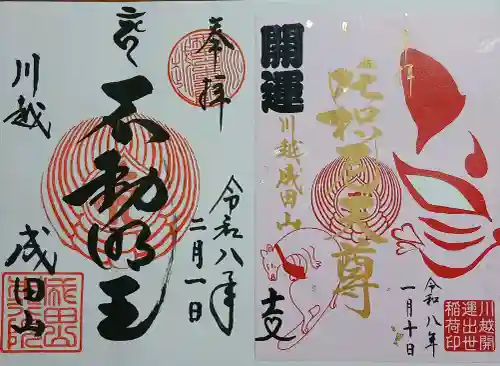 奉拝
不動明王
川越
成田山
令和八年
二月一日
開運
奉拝
吒枳尼天尊
川越成田山
令和八年
一月十日
川越開
運出世
稲荷印